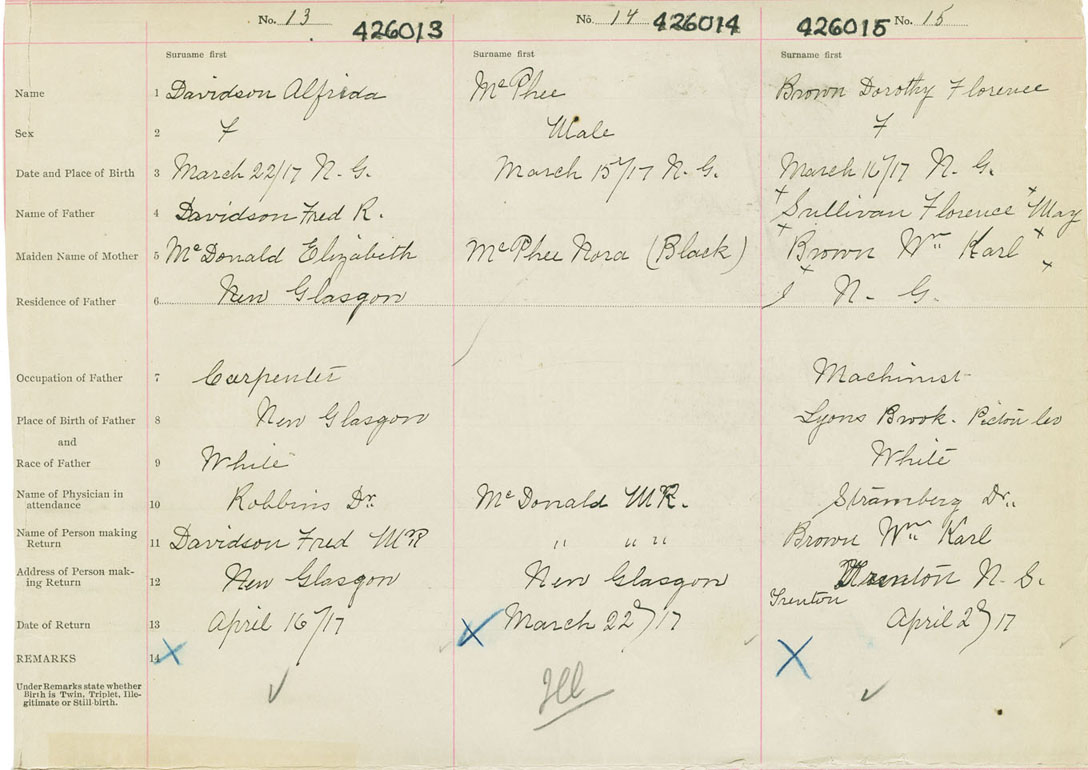 No. 13 426013 No. 14 426014 426015 No. 15
Surname first Surname first Surname first
Name 1 Davidson Alfrida McPhee Brown Dorothy Florence
Sex 2 F Male F
Date and Place of Birth 3 March 22/17 N. G. March 15/17 N. G. March 16/17 N. G.
Name of Father 4 Davidson Fred R. x Sullivan Florence May x
Maiden Name of Mother 5 McDonald Elizabeth McPhee Nora (Black) x Brown Wm Karl x
Residence of Father 6 New Glasgow N. G.
Occupation of Father 7 Carpenter Machinist
Place of Birth of Father 8 New Glasgow Lyons Brook. Pictou Co
and
Race of Father 9 White White
Name of Physician in
attendance 10 Robbins Dr. McDonald M R. Stramberg Dr.
Name of Person making
Return 11 Davidson Fred MR " " " Brown Wm Karl
Address of Person mak-
ing Return 12 New Glasgow New Glasgow Trenton N. S.
Trenton
Date of Return 13 April 16/17 March 22/17 April 2/17
REMARKS 14 x x x
Under Remarks state whether
Birth is Twin, Triplet, Ille-
gitimate or Still-birth.
Ill